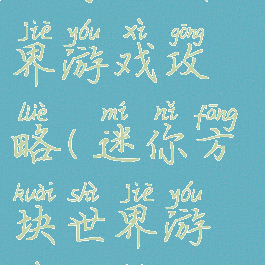 jiè yóu xì gōng
界游戏攻
lüè mí nǐ fāng
略(迷你方
kuài shì jiè yóu
块世界游